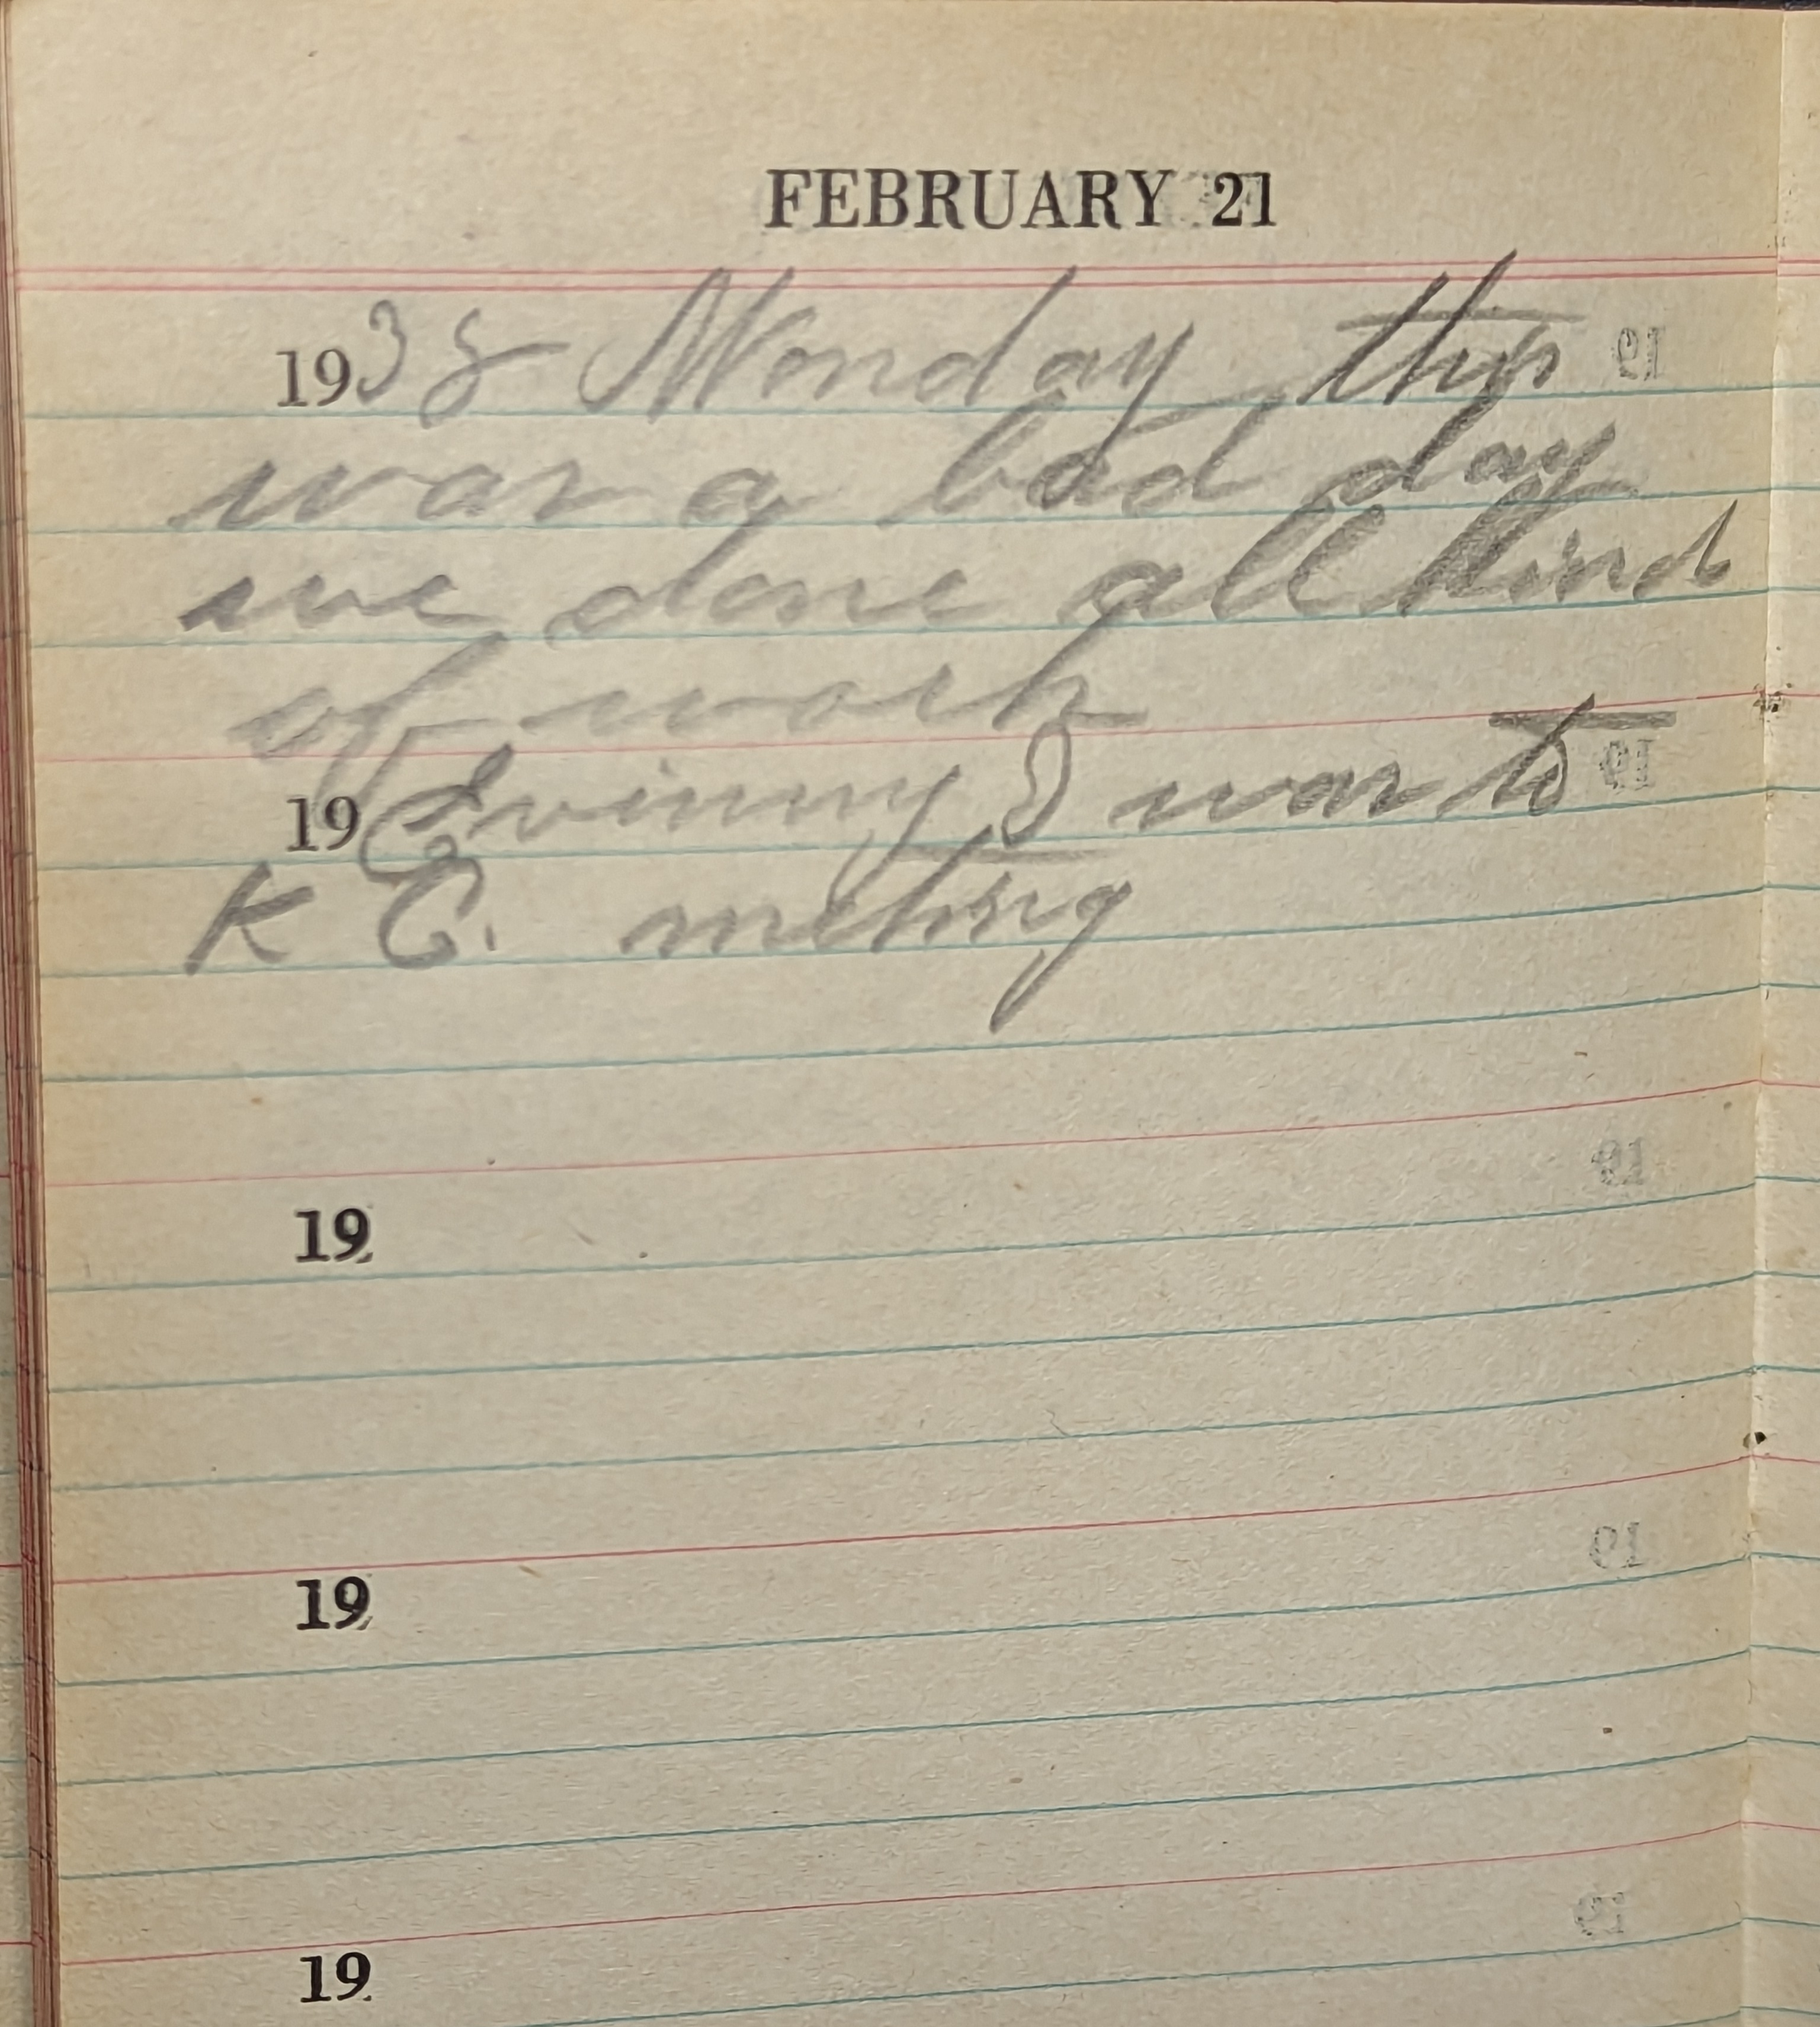 FEBRUARY 21
1938 Monday this
was a bad day
we done all kind
of work
19 Evining I was to
K C. meting
19
19
19